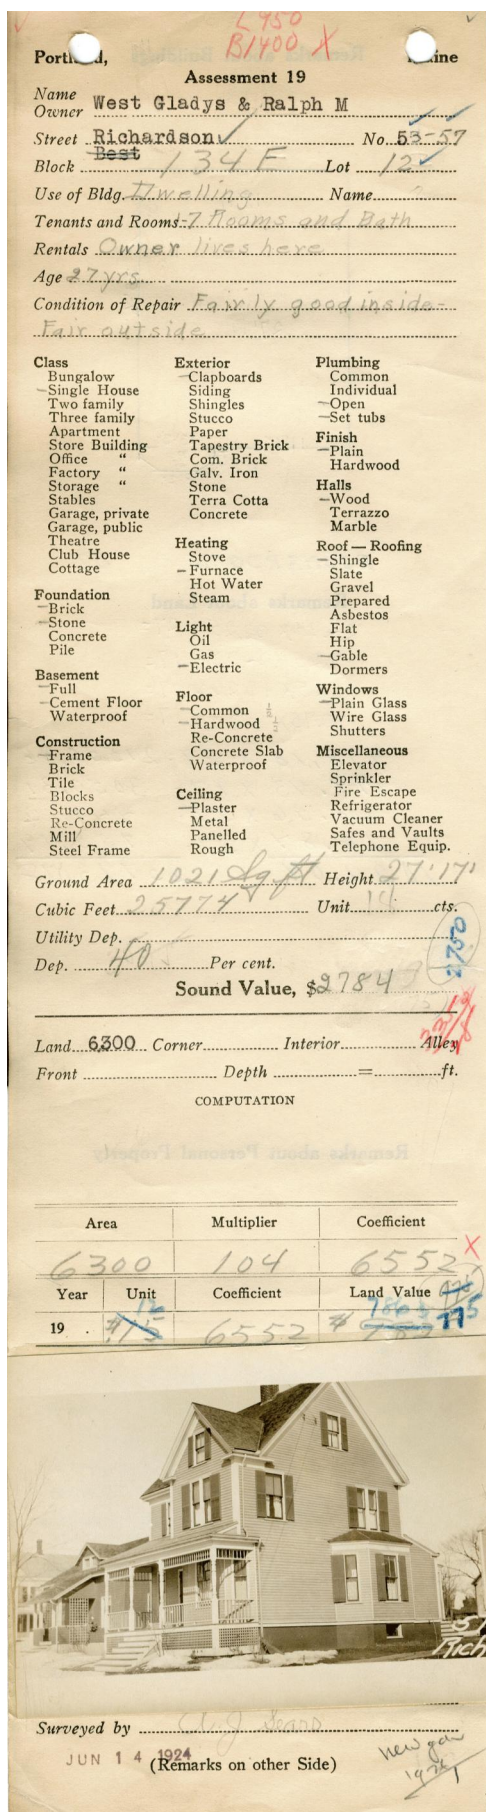 L 950
B1400 X
Portland, Maine
Assessment 19
Name
Owner West Gladys & Ralph M
Street Richardson No. 53-57
Best
Block 134 E Lot 12
Use of Bldg. Dwelling Name
Tenants and Rooms 1-7 Rooms and Bath
Rentals Owner lives here
Age 27 yrs.
Condition of Repair Fairly good inside-
Fair outside
Class
Bungalow
Single House
Two family
Three family
Apartment
Store Building
Office "
Factory "
Storage "
Stables
Garage, private
Garage, public
Theatre
Club House
Cottage
Foundation
Brick
Stone
Concrete
Pile
Basement
Full
Cement Floor
Waterproof
Construction
Frame
Brick
Tile
Blocks
Stucco
Re-Concrete
Mill
Steel Frame
Exterior
Clapboards
Siding
Shingles
Stucco
Paper
Tapestry Brick
Com. Brick
Galv. Iron
Stone
Terra Cotta
Concrete
Heating
Stove
Furnace
Hot Water
Steam
Light
Oil
Gas
Electric
Floor
Common ½
Hardwood ½
Re-Concrete
Concrete Slab
Waterproof
Ceiling
Plaster
Metal
Panelled
Rough
Plumbing
Common
Individual
Open
Set tubs
Finish
Plain
Hardwood
Halls
Wood
Terrazzo
Marble
Roof — Roofing
Shingle
Slate
Gravel
Prepared
Asbestos
Flat
Hip
Gable
Dormers
Windows
Plain Glass
Wire Glass
Shutters
Miscellaneous
Elevator
Sprinkler
Fire Escape
Refrigerator
Vacuum Cleaner
Safes and Vaults
Telephone Equip.
Ground Area 1021 Sq ft Height 27' 17'
Cubic Feet 25774 Unit 18 cts.
Utility Dep.
2750
Dep. 40 Per cent.
Sound Value, $2784
Land 6300 Corner Interior Alley
Front Depth = ft.
COMPUTATION
Area Multiplier Coefficient
6300 104 6552 X
Year Unit Coefficient Land Value
12 786
19 . $15 6552 $ 775
Rich
Surveyed by
JUN 14 1924
(Remarks on other Side)